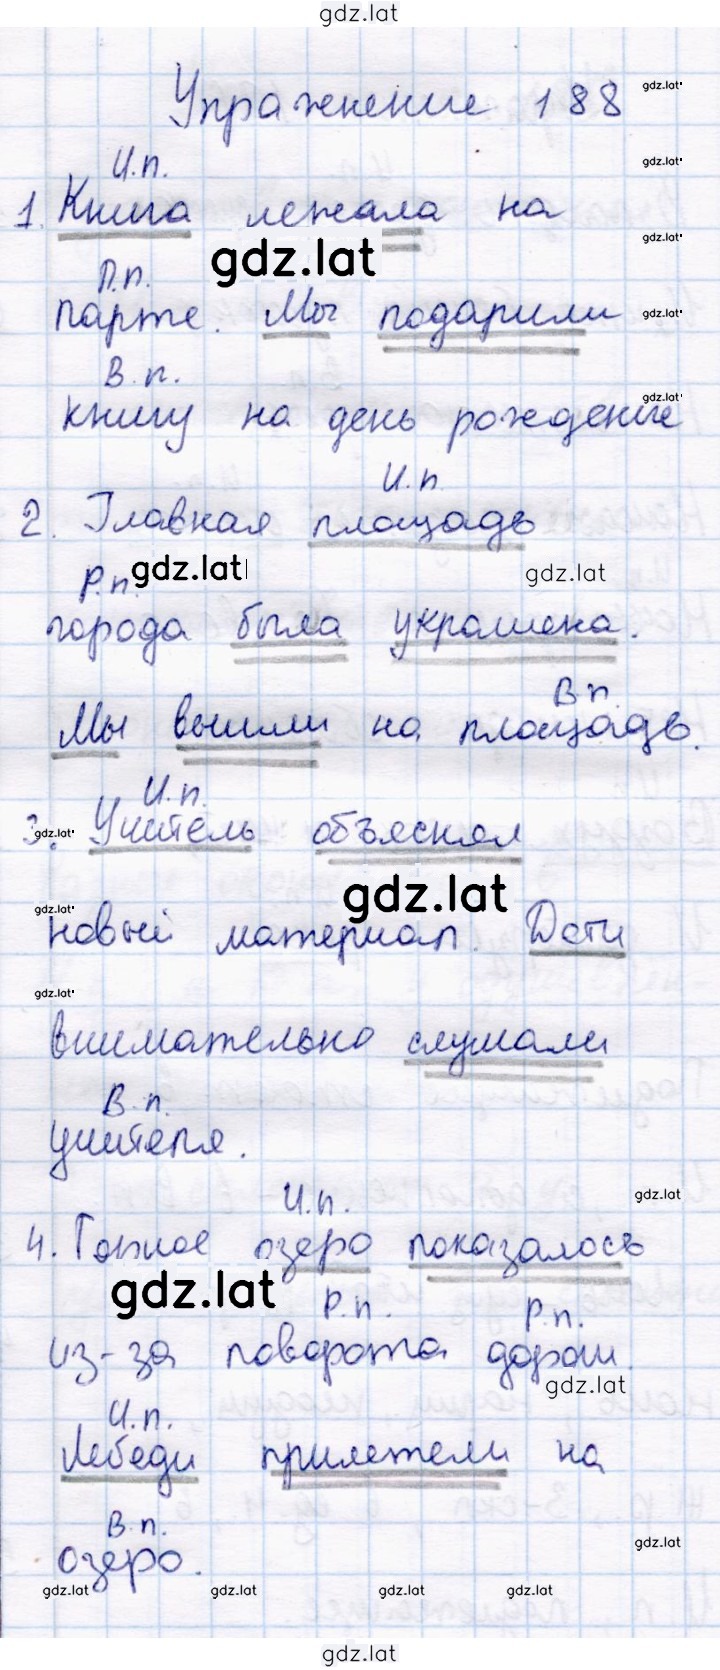 gdz.lat
Упражнение 188
gdz.lat
И.п.
gdz.lat
1. Книга лежала на
gdz.lat
gdz.lat
П.п.
парте. Мы подарили
gdz.lat
В.п.
gdz.lat
книгу на день рождение
И.п.
2. Главная площадь
Р.п.
gdz.lat
gdz.lat
города была украшена.
В п.
Мы вышли на площадь.
И.п.
gdz.lat
3. Учитель объяснял
gdz.lat
gdz.lat
новый материал. Дети
gdz.lat
внимательно слушали
В.п.
учителя.
gdz.lat
И.п.
4. Горное озеро показалось
gdz.lat
Р.п. Р.п.
из-за поворота дороги.
gdz.lat
И.п.
Лебеди прилетели на
В.п.
gdz.lat
озеро.
gdz.lat gdz.lat gdz.lat gdz.lat
gdz.lat